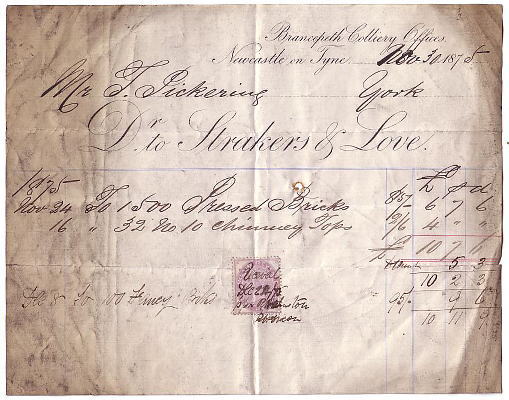 Brancepeth Colliery Offices.
Newcastle on Tyne Nov 30 1875
Mr T. Pickering York
Dr. to Strakers & Love.
1875 £ s d
Nov 24 To 1500 Pressed Bricks 85/- 6 7 6
16 " 32 No 10 Chimney Tops 2/6 4 " "
£ 10 7 6
5 3
10 2 3
Dec 8 To 100 95/- 9 6
10 11 9